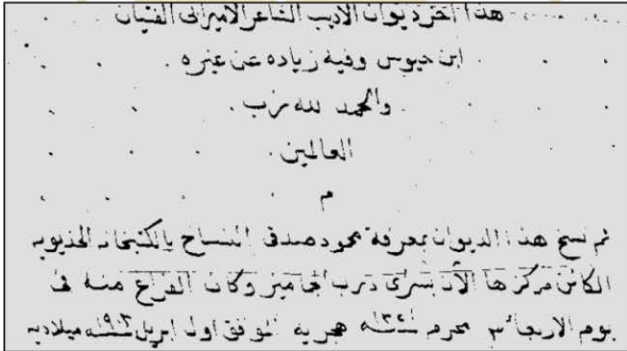 هذا آخر ديوان الاديب الشاعر الامير ابى الفتيان
ابن حيوس وفيه زياده عن غيره .
والحمد لله رب .
العالمين .
م
تم نسخ هذا الديوان بمعرفة محمود صدقى النساخ بالكتبخانه الخديويه
الكائن مركزها الآن بسراى درب الجماميز وكان الفراغ منه فى
يوم الاربعاء ٣ محرم سنة ١٣٢١ هجريه الموفق اول ابريل سنة ١٩٠٣ ميلاديه